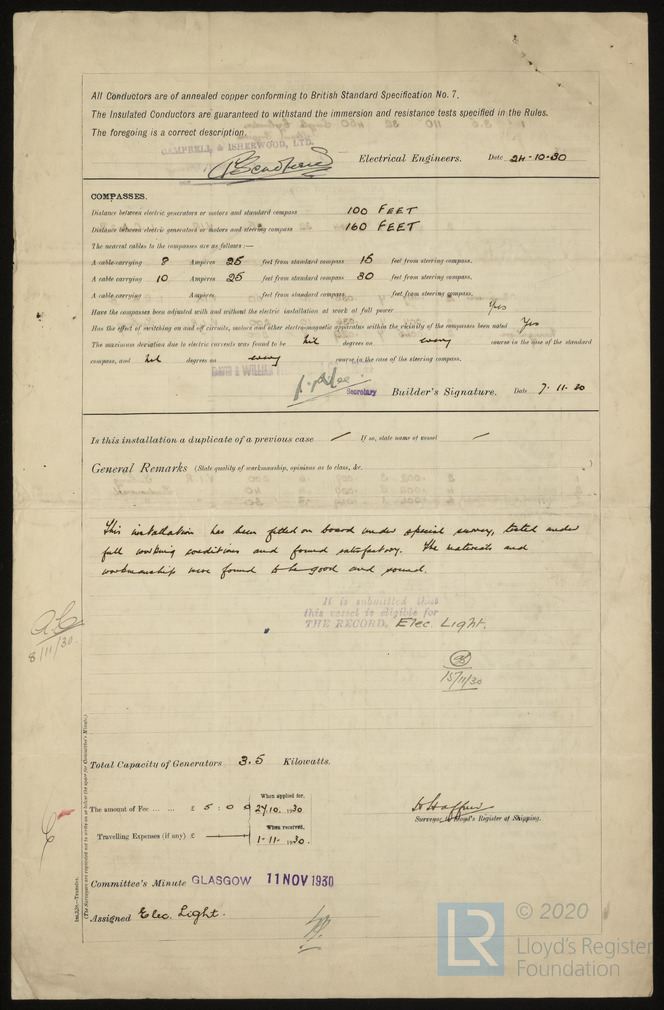 All Conductors are of annealed copper conforming to British Standard Specification No. 7.
The Insulated Conductors are guaranteed to withstand the immersion and resistance tests specified in the Rules.
The foregoing is a correct description.
CAMPBELL & ISHERWOOD, LTD.
Electrical Engineers. Date 24-10-30
COMPASSES.
Distance between electric generators or motors and standard compass 100 FEET
Distance between electric generators or motors and steering compass 160 FEET
The nearest cables to the compasses are as follows :—
A cable carrying ? Ampères 25 feet from standard compass 15 feet from steering compass.
A cable carrying 10 Ampères 25 feet from standard compass 30 feet from steering compass.
A cable carrying Ampères feet from standard compass feet from steering compass.
Have the compasses been adjusted with and without the electric installation at work at full power Yes
Has the effect of switching on and off circuits, motors and other electro-magnetic apparatus within the vicinity of the compasses been noted Yes
The maximum deviation due to electric currents was found to be nil degrees on every course in the case of the standard
compass, and nil degrees on every course in the case of the steering compass.
Secretary Builder's Signature. Date 7-11-30
Is this installation a duplicate of a previous case / If so, state name of vessel /
General Remarks (State quality of workmanship, opinions as to class, &c. )
This installation has been fitted on board under special survey, tested under
full working conditions and found satisfactory. The materials and
workmanship were found to be good and sound.
It is submitted that
this vessel is eligible for
THE RECORD. Elec. Light.
8/11/30
15/11/30
Total Capacity of Generators 3.5 Kilowatts.
When applied for,
The amount of Fee ... ... £ 5 : 0 0 27.10. 1930
When received,
Travelling Expenses (if any) £ 1-11- 1930.
Surveyor to Lloyd's Register of Shipping.
Committee's Minute GLASGOW 11 NOV 1930
Assigned Elec. Light.
(The Surveyors are requested not to write on or below the space for Committee's Minute.)
LR
© 2020
Lloyd's Register
Foundation